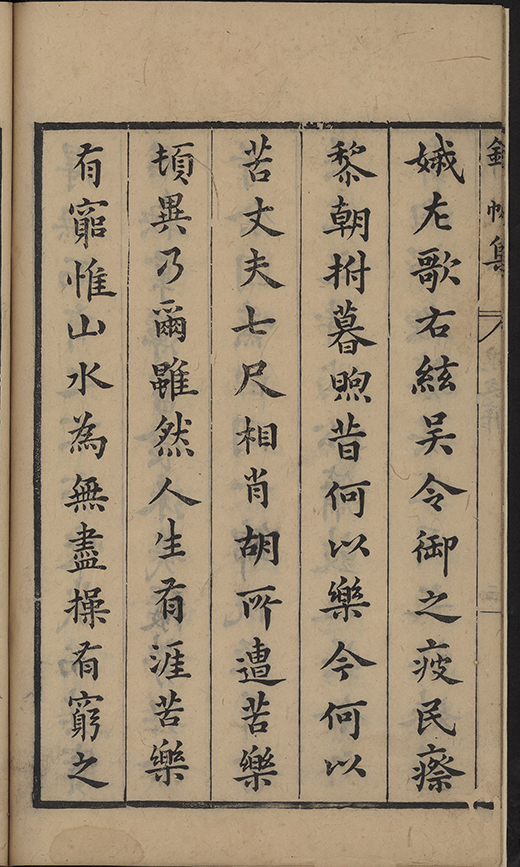 錦帆集
娥左歌右絃吳令御之疲民瘵
黎朝拊暮煦昔何以樂今何以
苦丈夫七尺相肖胡所遭苦樂
頓異乃爾雖然人生有涯苦樂
有竆惟山水為無盡操有窮之